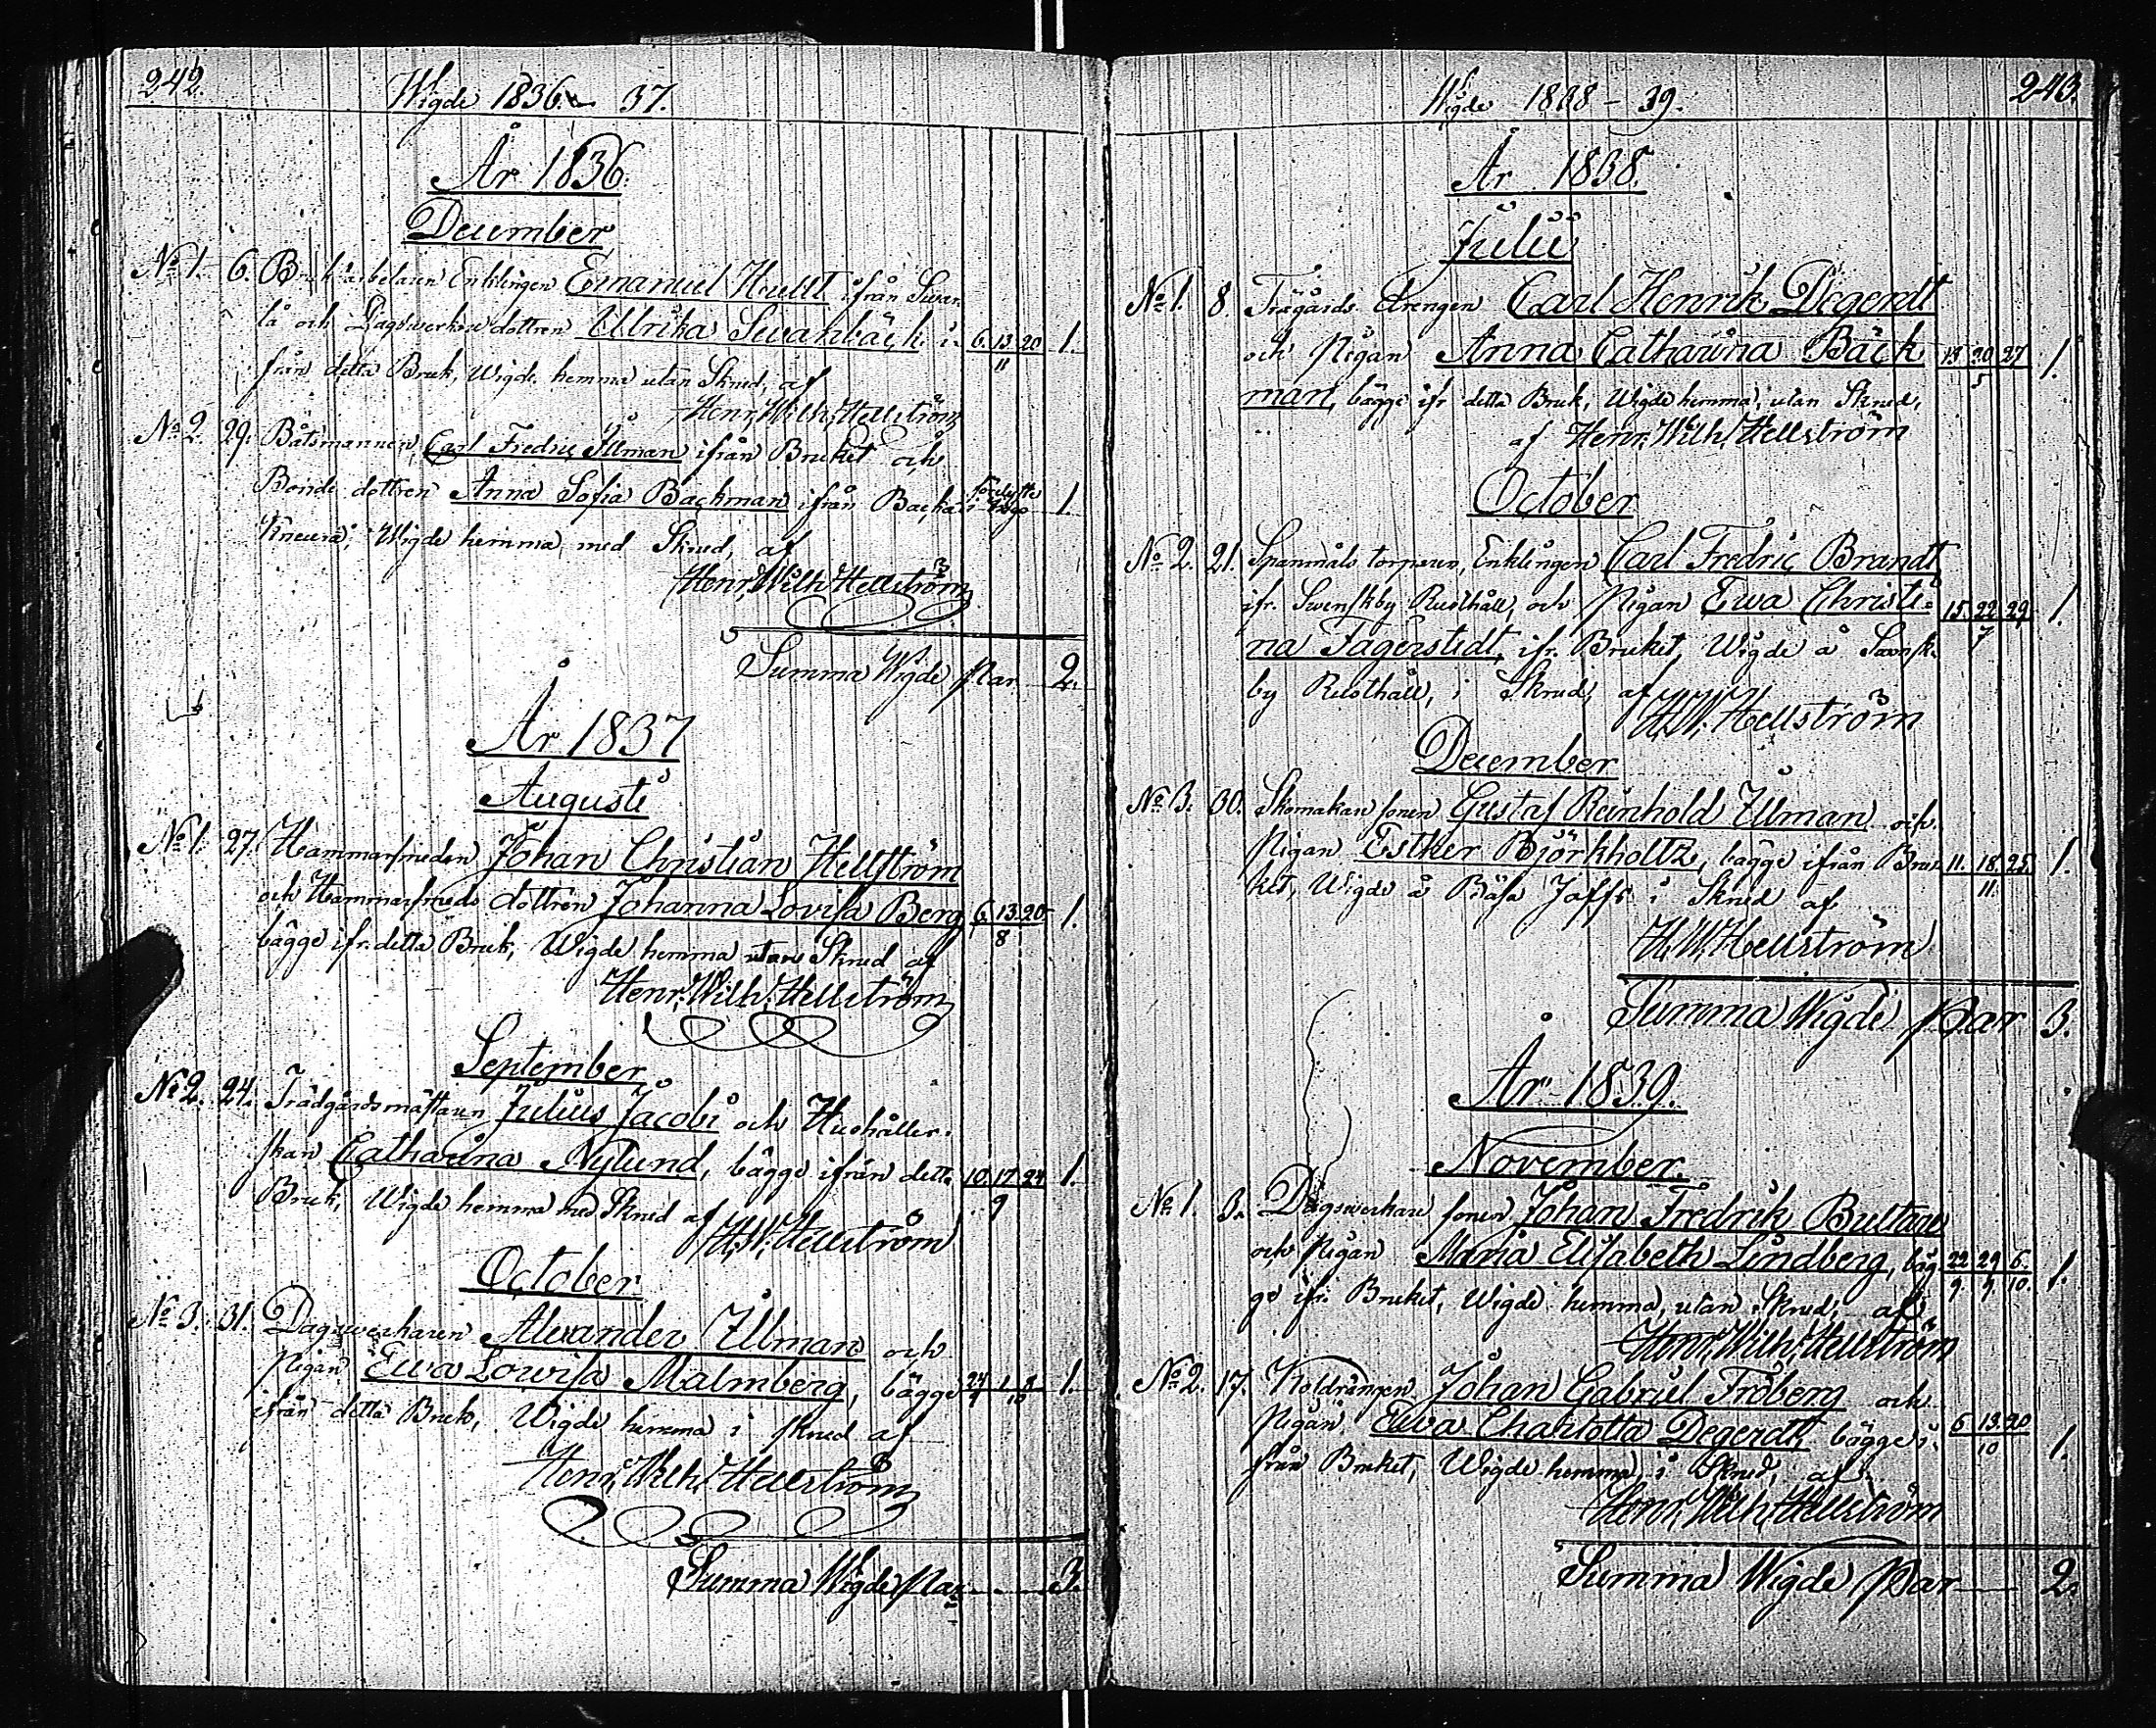 242.
Wigde 1836 - 37.
År 1836.
December
No 1. 6. Bruksarbetaren Enklingen Emanuel Hultt ifrån Swan
lå och Dagsverkare dottren Ulrika Swanbäck i- 6. 13. 20 1.
från detta Bruk, Wigde hemma utan Skrud, af 11
Henr. Wilh. Hellström
No 2. 29. Båtsmannen Carl Fredric Ullman ifrån Bruket och
Bonde dottren Anna Sofia Backman ifrån Backa 1.
Wigde hemma, med Skrud, af
Henr. Wilh. Hellström
Summa Wigde Par 2.
År 1837
Augusti
No 1. 27. Hammarsmeden Johan Christian Hellström
och Hammarsmeds dottren Johanna Lovisa Berg 6. 13. 20 1.
bägge ifr. detta Bruk, Wigde hemma utan Skrud af 8
Henr. Wilh. Hellström
September
No 2. 24. Trädgårdsmästaren Julius Jacobi och Hushåller-
skan Catharina Nylund, bägge ifrån detta 10. 17. 24 1.
Bruk, Wigde hemma med Skrud af 9
H. W. Hellström
October
No 3. 31. Dagsverkaren Alexander Ullman och
Pigan Ewa Lovisa Malmberg, bägge 24 1. 8 1.
ifrån detta Bruk, Wigde hemma i skrud af 9 10
Henr. Wilh. Hellström
Summa Wigde Par 3.
Wigde 1838 - 39.
243.
År 1838.
Julii
No 1. 8 Trägårds drengen Carl Henrik Degerdt
och Pigan Anna Catharina Back 20 27 1.
man, bägge ifr detta Bruk, Wigde hemma, utan Skrud, 5
af Henr. Wilh. Hellström
October
No 2. 21. Spanmåls torparen, Enklingen Carl Fredric Brandt
ifr. Swenskby Rusthåll, och Pigan Ewa Christi- 15. 22. 29. 1.
na Fagerstedt, ifr. Bruket, Wigde å Swensk- 7
by Rusthåll, i Skrud, af
H. W. Hellström
December
No 3. 30. Skomakar sonen Gustaf Reinhold Ullman och
Pigan Esther Björkholtz, bägge ifrån Bru- 11. 18. 25. 1.
ket, Wigde å Bäsa i Skrud af 11.
H. W. Hellström
Summa Wigde Par 3.
År 1839.
November
No 1. 3. Dagsverkare sonen Johan Fredrik Bultare
och Pigan Maria Elisabeth Lindberg, bäg- 22 29 6. 1.
ge ifr. Bruket, Wigde hemma, utan Skrud, af 9. 9. 10.
Henr. Wilh. Hellström
No 2. 17. Koldrängen Johan Gabriel Fröberg och
Pigan Ewa Charlotta Degerdt, bägge i- 6 13. 20 1.
från Bruket, Wigde hemma, i Skrud, af 10
Henr. Wilh. Hellström
Summa Wigde Par 2.